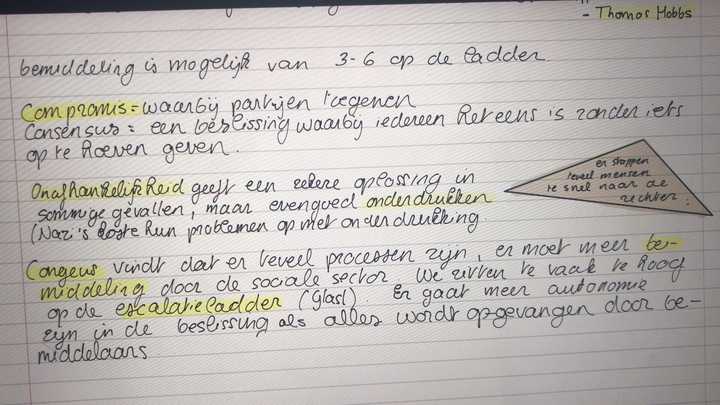 - Thomas Hobbs
bemiddeling is mogelijk van 3-6 op de ladder
Compromis = waarbij partijen toegeven
Consensus = een beslissing waarbij iedereen het eens is zonder iets
op te hoeven geven.
Onafhankelijkheid geeft een zekere oplossing in
sommige gevallen, maar evengoed onderdrukken
(Nazi's loste hun problemen op met onderdrukking
er stappen
teveel mensen
te snel naar de
rechter.
Congeus vindt dat er teveel processen zijn, er moet meer be-
middeling door de sociale sector. We zitten te vaak te hoog
op de escalatieladder (Glasl). Er gaat meer autonomie
zijn in de beslissing als alles wordt opgevangen door be-
middelaars